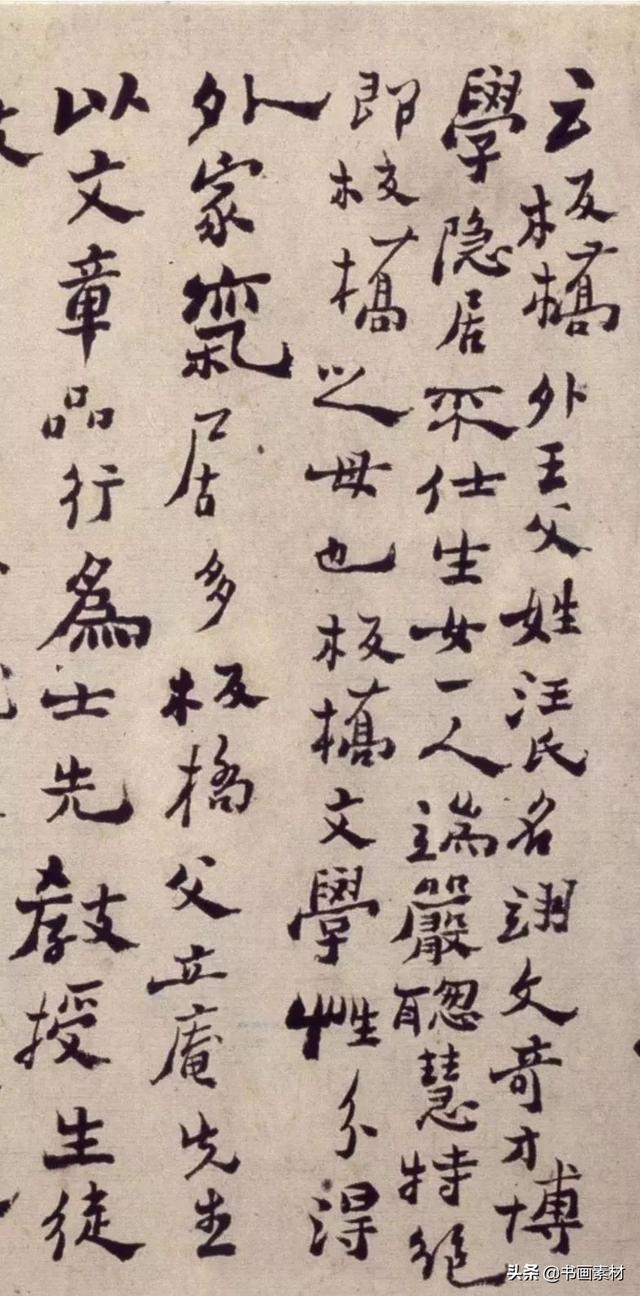 云板橋外王父姓汪氏名翊文奇才博
學隐居不仕生女一人端嚴聰慧特絕
即板橋之母也板橋文學性分得
外家氣居多板橋父立庵先生
以文章品行爲士先教授生徒
头条 @书画素材